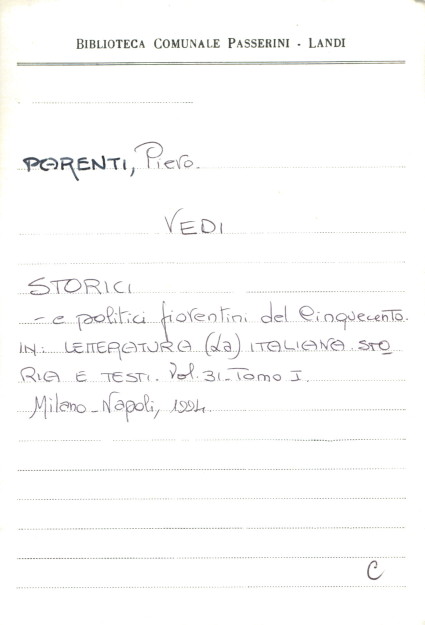 BIBLIOTECA COMUNALE PASSERINI - LANDI
PARENTI, Piero.
VEDI
STORICI
- e politici fiorentini del Cinquecento.
IN: LETTERATURA (La) ITALIANA. STO
RIA E TESTI. Vol. 31 - Tomo I.
Milano - Napoli, 1994.
C